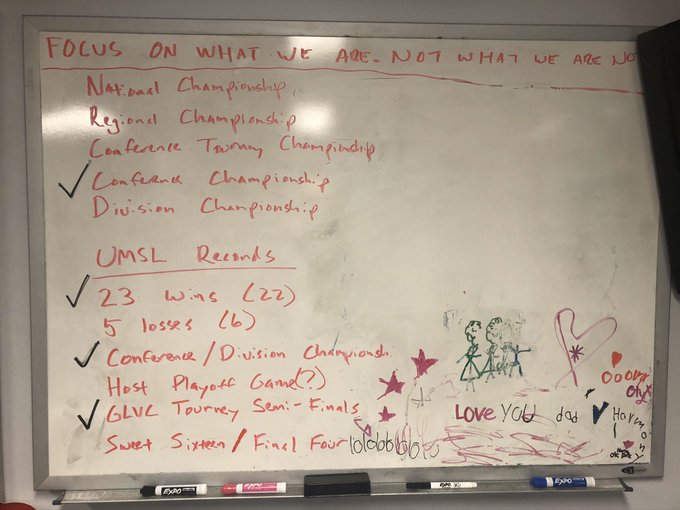 FOCUS ON WHAT WE ARE. NOT WHAT WE ARE NO
National Championship
Regional Championship
Conference Tourney Championship
✓ Conference Championship
Division Championship
UMSL Records
✓ 23 wins (22)
5 losses (6)
✓ Conference/Division Championsh
Host Playoff Game(?)
✓ GLVC Tourney Semi-Finals
Sweet Sixteen/Final Four
LOVE YOU dad
Harmony
EXPO
EXPO
EXPO
EXPO